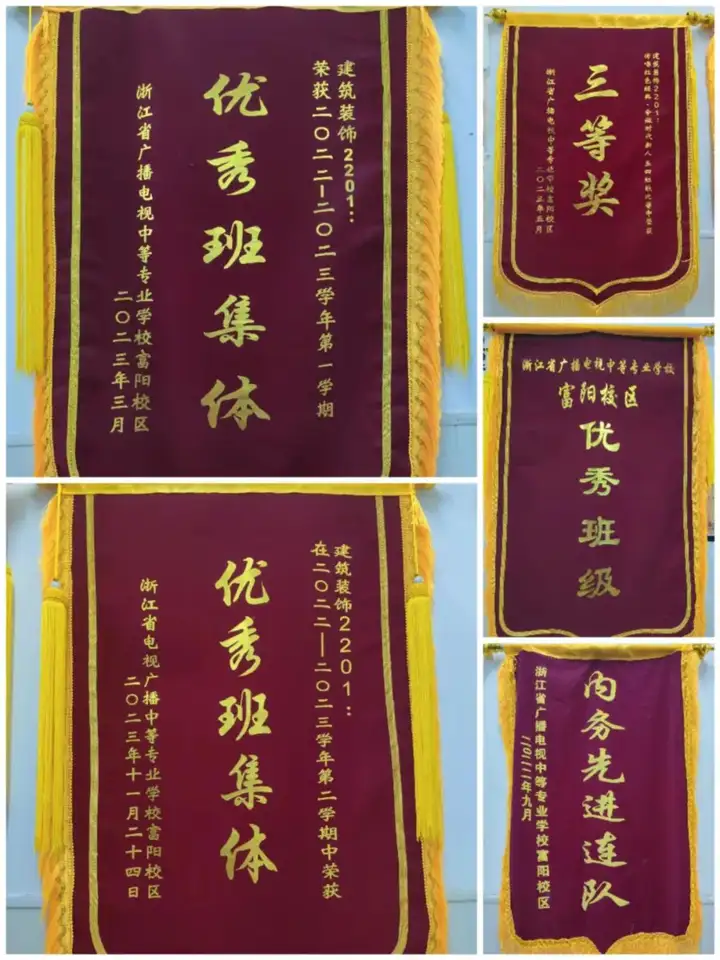 建筑装饰2201:
荣获二〇二二—二〇二三学年第一学期
优秀班集体
浙江省广播电视中等专业学校富阳校区
二〇二三年三月
建筑装饰2201:
三等奖
浙江省广播电视中等专业学校富阳校区
二〇二三年五月
浙江省广播电视中等专业学校
富阳校区
优秀班级
建筑装饰2201:
在二〇二二—二〇二三学年第二学期中荣获
优秀班集体
浙江省电视广播中等专业学校富阳校区
二〇二三年十一月二十四日
内务先进连队
浙江省广播电视中等专业学校富阳校区
二〇二二年九月